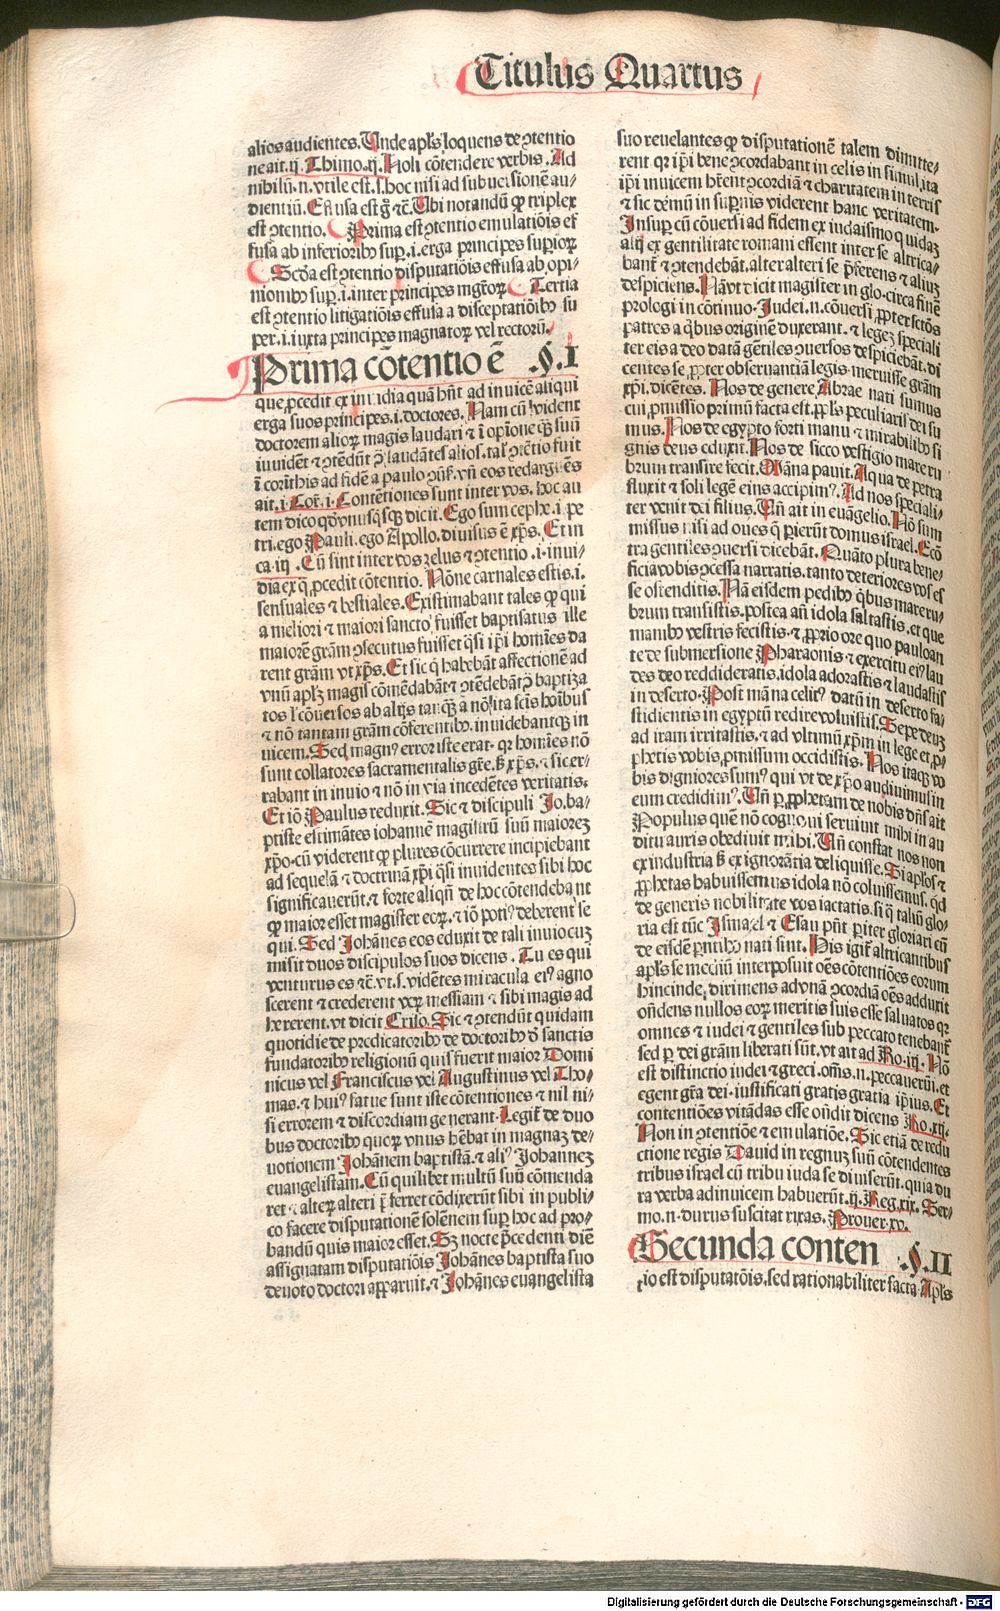 Titulus Quartus
alios audientes. Unde apl's loquens de ↄtentio
ne ait .ij. Thimo .ij. Noli cōtendere verbis. Ad
nihilū .n. vtile est .s. hoc nisi ad subuersionē au-
dientiū. Effusa est g̃ ⁊c̄. Ubi notandū ꝙ triplex
est ↄtentio. Prima est ↄtentio emulatiōis ef
fusa ab inferioribꝰ sup̱ .i. erga principes supioꝝ
Scd̄a est ↄtentio disputatiōis effusa ab opi-
nionibꝰ sup̱ .i. inter principes mgr̄oꝝ Tertia
est ↄtentio litigatiōis effusa a disceptatiōibꝰ su
per .i. iuxta principes magnatoꝝ vel rectorū.
Prima cōtentio ē .§. I
que ꝓcedit ex inuidia quā hn̄t ad inuicē aliqui
erga suos principes .i. doctores. Nam cū vident
doctorem alioꝝ magis laudari ⁊ ī opīone qꝫ suū
inuidēt ⁊ ↄtēdūt ↄ̄ laudātes alios. tal' ↄtētio fuit
ī corīthis ad fidē a paulo ↄūsꝭ. vn̄ eos redarguēs
ait .i. Cor̄. i. Contētiones sunt inter vos. hoc au
tem dico qd̄ vnusqꝫsqꝫ dicit. Ego sum cephe .i. pe
tri. ego Pauli. ego Apollo. diuisus ē xp̄s. Et in
ca. iij. Cū sint inter vos zelus ⁊ ↄtentio .i. inui-
dia ex q̄ ꝓcedit cōtentio. Nōne carnales estis .i.
sensuales ⁊ bestiales. Existimabant tales ꝙ qui
a meliori ⁊ maiori sancto fuisset baptisatus ille
maiorē grām ↄsecutus fuisset q̄si ip̄i homīes da
rent grām vt xp̄s. Et sic q̄ habebāt affectionē ad
vnū apl'ꝫ magis cōmēdabāt ⁊ ↄtēdebāt ↄ̄ baptiza
tos l' cōuersos ab alijs tanqꝫ a nō ita scīs hoībus
⁊ nō tantam grām cōferentibꝰ. inuidebantqꝫ in
uicem. Sed magnꝰ error iste erat. qr homīes nō
sunt collatores sacramentalis gr̄e. sꝫ xp̄s. ⁊ sic er-
rabant in inuio ⁊ nō in via incedētes veritatis.
Et iō Paulus reduxit. Sic ⁊ discipuli Jo. ba-
ptiste estimātes iohannē magistrū suū maiorez
xp̄o. cū viderent ꝙ plures cōcurrere incipiebant
ad sequelā ⁊ doctrinā xp̄i q̄si inuidentes sibi hoc
significauerūt. ⁊ forte aliqn̄ de hoc cōtendebant
ꝙ maior esset magister eoꝝ. ⁊ iō potiꝰ deberent se
qui. Sed Johānes eos eduxit de tali inuio cuꝫ
misit duos discipulos suos dicens. Tu es qui
venturus es ⁊c̄. vt .s. vidētes miracula eiꝰ agno
scerent ⁊ crederent veꝝ messiam ⁊ sibi magis ad
hererent. vt dicit Criso. Sic ⁊ ↄtendūt quidam
quotidie de predicatoribꝰ de doctoribꝰ d̄ sanctis
fundatoribꝰ religionū quis fuerit maior Domi
nicus vel Franciscus vel Augustinus vel Tho-
mas. ⁊ huiꝰ fatue sunt iste cōtentiones ⁊ nil ni-
si errorem ⁊ discordiam generant. Legit̄ de duo
bus doctoribꝰ quoꝝ vnus hēbat in magnaꝫ de-
uotionem Johānem baptistā. ⁊ aliꝰ Johannez
euangelistam. Cū quilibet multū suū cōmenda
ret ⁊ alteꝝ alteri p̄ferret cōdixerūt sibi in publi-
co facere disputationē solēnem sup̱ hoc ad pro-
bandū quis maior esset. Sꝫ nocte p̄cedenti diē
assignatam disputatiōis Johānes baptista suo
deuoto doctori apparuit. ⁊ Johānes euangelista
suo reuelantes ꝙ disputationē talem dimitte-
rent qr ip̄i bene ↄcordabant in celis in simul. ita
ip̄i inuicem hr̄ent ↄcordiā ⁊ charitatem in terris
⁊ sic demū in sup̱nis viderent hanc veritatem.
Insup̱ cū cōuersi ad fidem ex iudaismo quidaꝫ
alij ex gentilitate romani essent inter se altrica-
bant̄ ⁊ ↄtendebāt. alter alteri se p̄ferens ⁊ aliuꝫ
despiciens. Nā vt dicit magister in glo. circa finē
prologi in cōtinuo. Judei .n. cōuersi ꝓpter sctōs
patres a qͥbus originē duxerant. ⁊ legeꝫ speciali
ter eis a deo datā gētiles ↄuersos despiciebāt. di
centes se ꝓpter obseruantiā legis meruisse grām
xp̄i. dicētes. Nos de genere Abrae nati sumus
cui ꝓmissio primū facta est. ppl's peculiaris dei su
mus. Nos de egypto forti manu ⁊ mirabilibꝰ si
gnis deus eduxit. Nos de sicco vestigio mare ru
brum transire fecit. Māna pauit. Aqua de petra
fluxit ⁊ soli legē eius accipimꝰ. Ad nos speciali-
ter venit dei filius. Un̄ ait in euāgelio. Nō sum
missus nisi ad oues q̄ perierūt domus israel. Ecō
tra gentiles ↄuersi dicebāt. Quāto plura bene-
ficia vobis ↄcessa narratis. tanto deteriores vos es
se ostenditis. Nā eisdem pedibꝰ qͥbus mare ru-
brum transistis. postea an̄ idola saltastis. et que
manibꝰ vestris fecistis. ⁊ ꝓprio ore quo paulo an
te de submersione Pharaonis ⁊ exercitu eiꝰ lau
des deo reddideratis. idola adorastis ⁊ laudastis
in deserto. Post māna celitꝰ datū in deserto fa-
stidientis in egyptū redire voluistis. Sepe deuꝫ
ad iram irritastis. ⁊ ad vltimū xp̄m in lege et ꝓ-
phetis vobis ꝓmissum occidistis. Nos itaqꝫ vo
bis digniores sumꝰ qui vt de xp̄o audiuimus in
eum credidimꝰ. Un̄ p̱ ꝓphetam de nobis dn̄s ait
Populus quē nō cognoui seruiuit mihi in au
ditu auris obediuit mihi. Un̄ constat nos non
ex industria sꝫ ex ignorātia deliquisse. Si apl'os ⁊
ꝓphetas habuissemus idola nō coluissemus. qd̄
de generis nobilitate vos iactatis. si q̄ talíū glo-
ria est tūc Ismael ⁊ Esau pn̄t pariter gloriari cū
de eisdē parentibꝰ nati sint. His igit̄ altricantibus
apl's se mediū interposuit oēs cōtentiōes eorum
hincinde. dirimens ad vnā ↄcordiā oēs adduxit
on̄dens nullos eoꝝ meritis suis esse saluatos qr
omnes ⁊ iudei ⁊ gentiles sub peccato tenebant̄
sed p̱ dei grām liberati sūt. vt ait ad Ro. iij. Nō
est distinctio iudei ⁊ greci. om̄s .n. peccauerūt. et
egent gr̄a dei. iustificati gratis gratia ip̄ius. Et
contentiōes vitādas esse on̄dit dicens Ro. xiij.
Non in ↄtentiōe ⁊ emulatiōe. Sic etiā de redu
ctione regis Dauid in regnuꝫ suū cōtendentes
tribus israel cū tribu iuda se diuiserūt. quia du
ra verba adinuicem habuerūt. ij. Reg. xix. Ser-
mo .n. durus suscitat rixas. Prouer. xv.
Secunda conten .§. II
tio est disputatōis. sed rationabiliter facta. Apl's
Digitalisierung gefördert durch die Deutsche Forschungsgemeinschaft - DFG